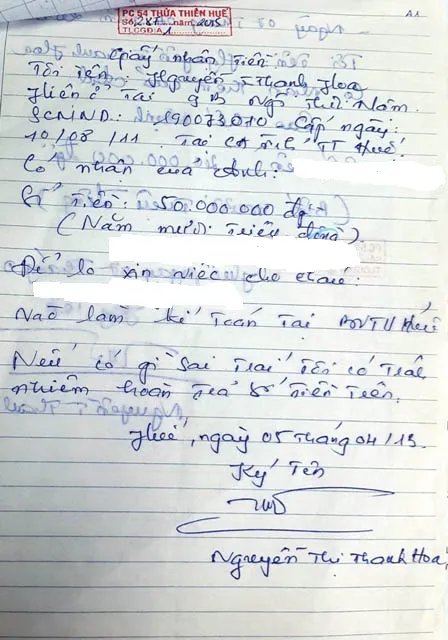 A1
PC 54 THỪA THIÊN HUẾ
Số: 287 năm 2015
TLCGĐ: A1
Giấy nhận tiền
Tôi tên Nguyễn T Thanh Hoa
Hiện ở tại 9B Ngô Thế
SCMND: 190073010 Cấp ngày:
10/08/11. Tại CA Tỉnh TT Huế.
Có nhận của Anh:
Số tiền: 50.000.000 đg
(Năm mươi triệu đồng)
Để lo xin việc cho cháu:
Vào làm kế toán tại BVTW Huế
Nếu có gì sai trái tôi có trách
nhiệm hoàn trả số tiền trên.
Huế, ngày 05 tháng 04/13
Ký tên
Nguyễn Thị Thanh Hoa